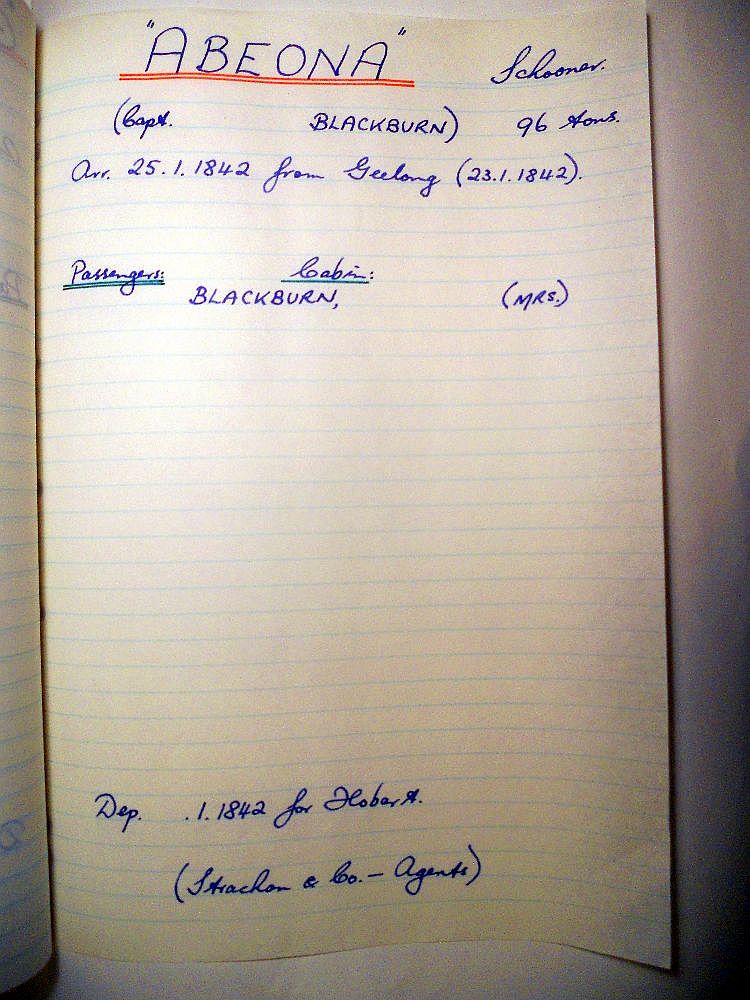 "ABEONA" Schooner.
(Capt. BLACKBURN) 96 tons.
Arr. 25.1.1842 from Geelong (23.1.1842).
Passengers: Cabin:
BLACKBURN, (MRS.)
Dep. .1.1842 for Hobart.
(Strachan & Co. - Agents)